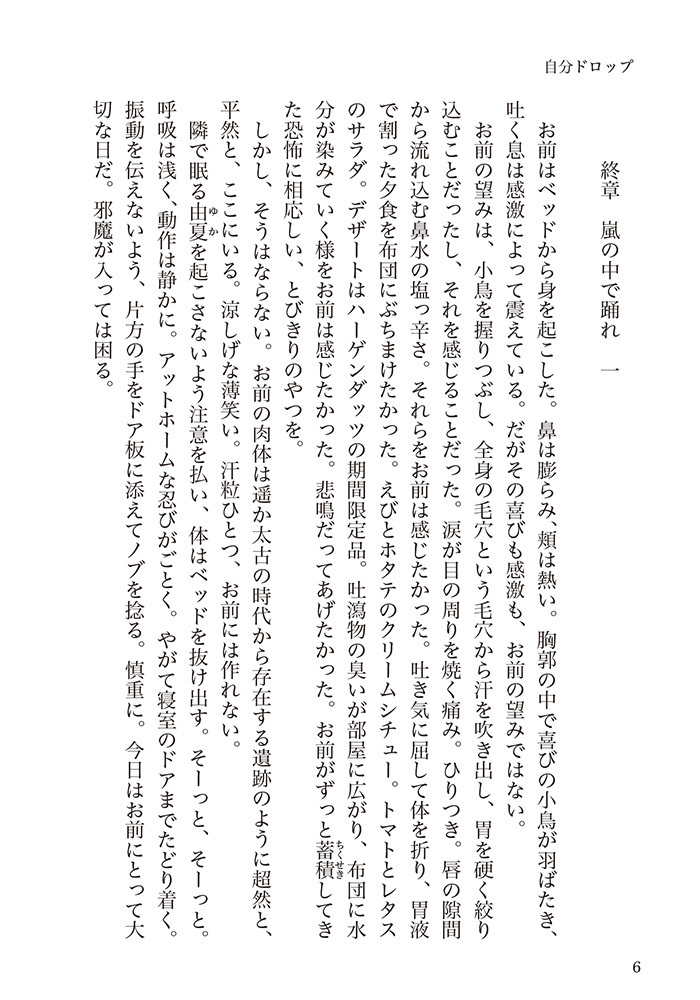 自分ドロップ
終章　嵐の中で踊れ　一
お前はベッドから身を起こした。鼻は膨らみ、頬は熱い。胸郭の中で喜びの小鳥が羽ばたき、
吐く息は感激によって震えている。だがその喜びも感激も、お前の望みではない。
お前の望みは、小鳥を握りつぶし、全身の毛穴という毛穴から汗を吹き出し、胃を硬く絞り
込むことだったし、それを感じることだった。涙が目の周りを焼く痛み。ひりつき。唇の隙間
から流れ込む鼻水の塩っ辛さ。それらをお前は感じたかった。吐き気に屈して体を折り、胃液
で割った夕食を布団にぶちまけたかった。えびとホタテのクリームシチュー。トマトとレタス
のサラダ。デザートはハーゲンダッツの期間限定品。吐瀉物の臭いが部屋に広がり、布団に水
分が染みていく様をお前は感じたかった。悲鳴だってあげたかった。お前がずっと蓄積してき
ちくせき
た恐怖に相応しい、とびきりのやつを。
しかし、そうはならない。お前の肉体は遥か太古の時代から存在する遺跡のように超然と、
平然と、ここにいる。涼しげな薄笑い。汗粒ひとつ、お前には作れない。
隣で眠る由夏を起こさないよう注意を払い、体はベッドを抜け出す。そーっと、そーっと。
ゆか
呼吸は浅く、動作は静かに。アットホームな忍びがごとく。やがて寝室のドアまでたどり着く。
振動を伝えないよう、片方の手をドア板に添えてノブを捻る。慎重に。今日はお前にとって大
切な日だ。邪魔が入っては困る。
6